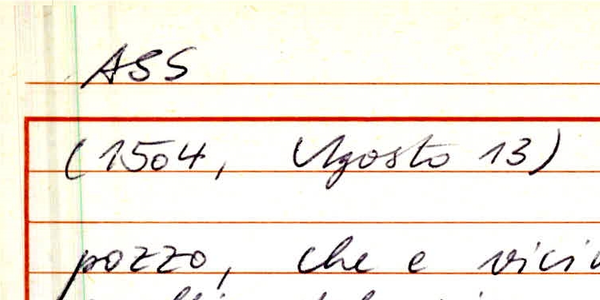 ASS
(1504, Agosto 13)
pozzo, che e